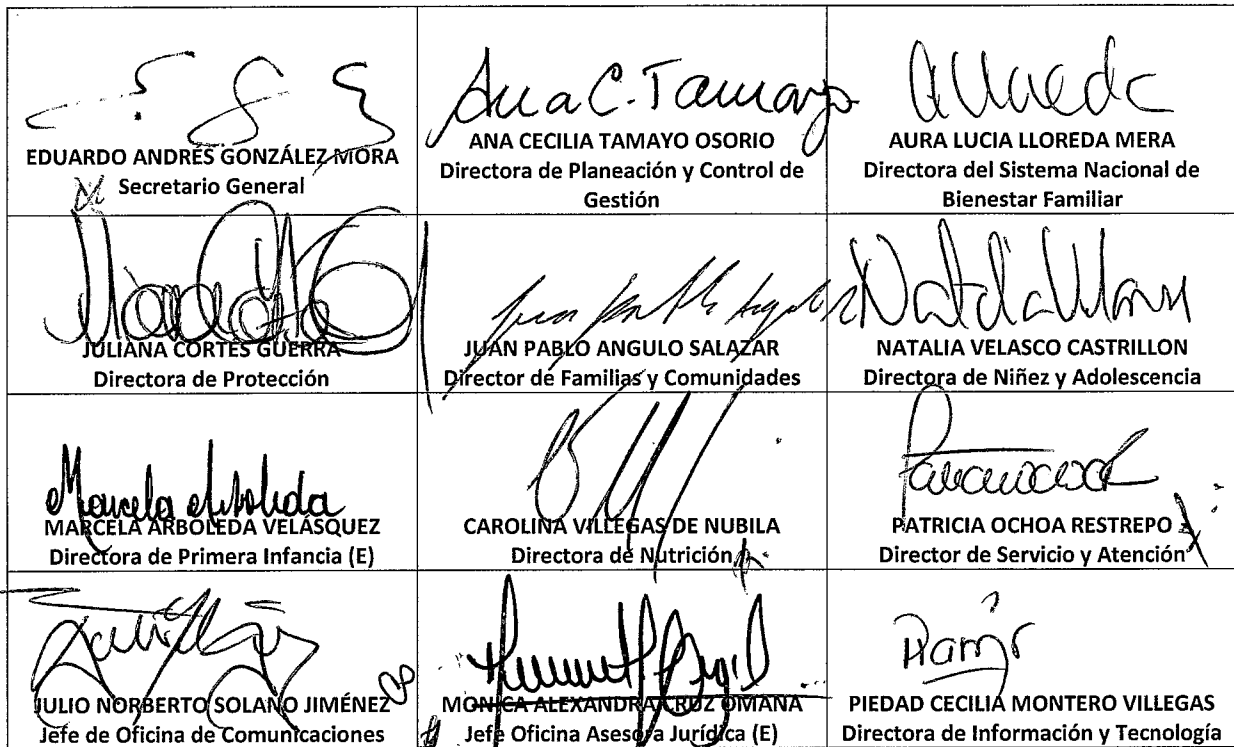 Ana C. Tamayo
EDUARDO ANDRÉS GONZÁLEZ MORA
Secretario General
ANA CECILIA TAMAYO OSORIO
Directora de Planeación y Control de
Gestión
AURA LUCIA LLOREDA MERA
Directora del Sistema Nacional de
Bienestar Familiar
JULIANA CORTES GUERRA
Directora de Protección
JUAN PABLO ANGULO SALAZAR
Director de Familias y Comunidades
NATALIA VELASCO CASTRILLON
Directora de Niñez y Adolescencia
Marcela Arboleda
MARCELA ARBOLEDA VELÁSQUEZ
Directora de Primera Infancia (E)
CAROLINA VILLEGAS DE NUBILA
Directora de Nutrición
PATRICIA OCHOA RESTREPO
Director de Servicio y Atención
JULIO NORBERTO SOLANO JIMÉNEZ
Jefe de Oficina de Comunicaciones
MONICA ALEXANDRA CRUZ OMAÑA
Jefe Oficina Asesora Jurídica (E)
PIEDAD CECILIA MONTERO VILLEGAS
Directora de Información y Tecnología